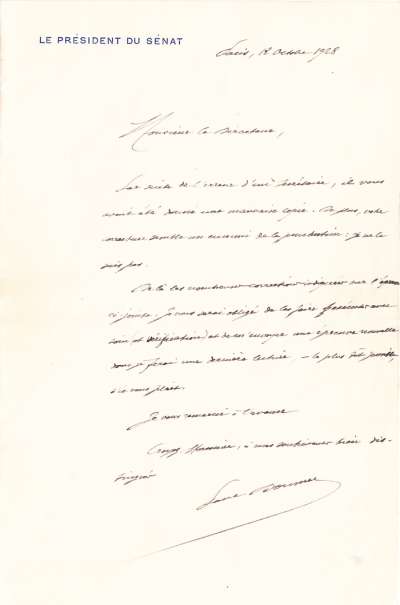 LE PRÉSIDENT DU SÉNAT
Paris, 18 Octobre 1928
Monsieur le Directeur,
Par suite de l'erreur d'une secrétaire, il vous
avait été donné une mauvaise copie. De plus, votre
correcteur semble un ennemi de la ponctuation : je ne le
suis pas.
De là les nombreuses corrections indiquées sur l'épreuve
ci jointe. Je vous serai obligé de les faire exécuter avec
soin et vérification, et de m'envoyer une épreuve nouvelle
dont je ferai une dernière lecture, le plus tôt possible,
s'il vous plaît.
Je vous remercie à l'avance
Croyez, Monsieur, à mes sentiments bien dis-
tingués
Paul Doumer